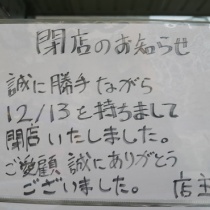 閉店のお知らせ
誠に勝手ながら
12/13を持ちまして
閉店いたしました。
ご愛顧誠にありがとう
ございました。 店主